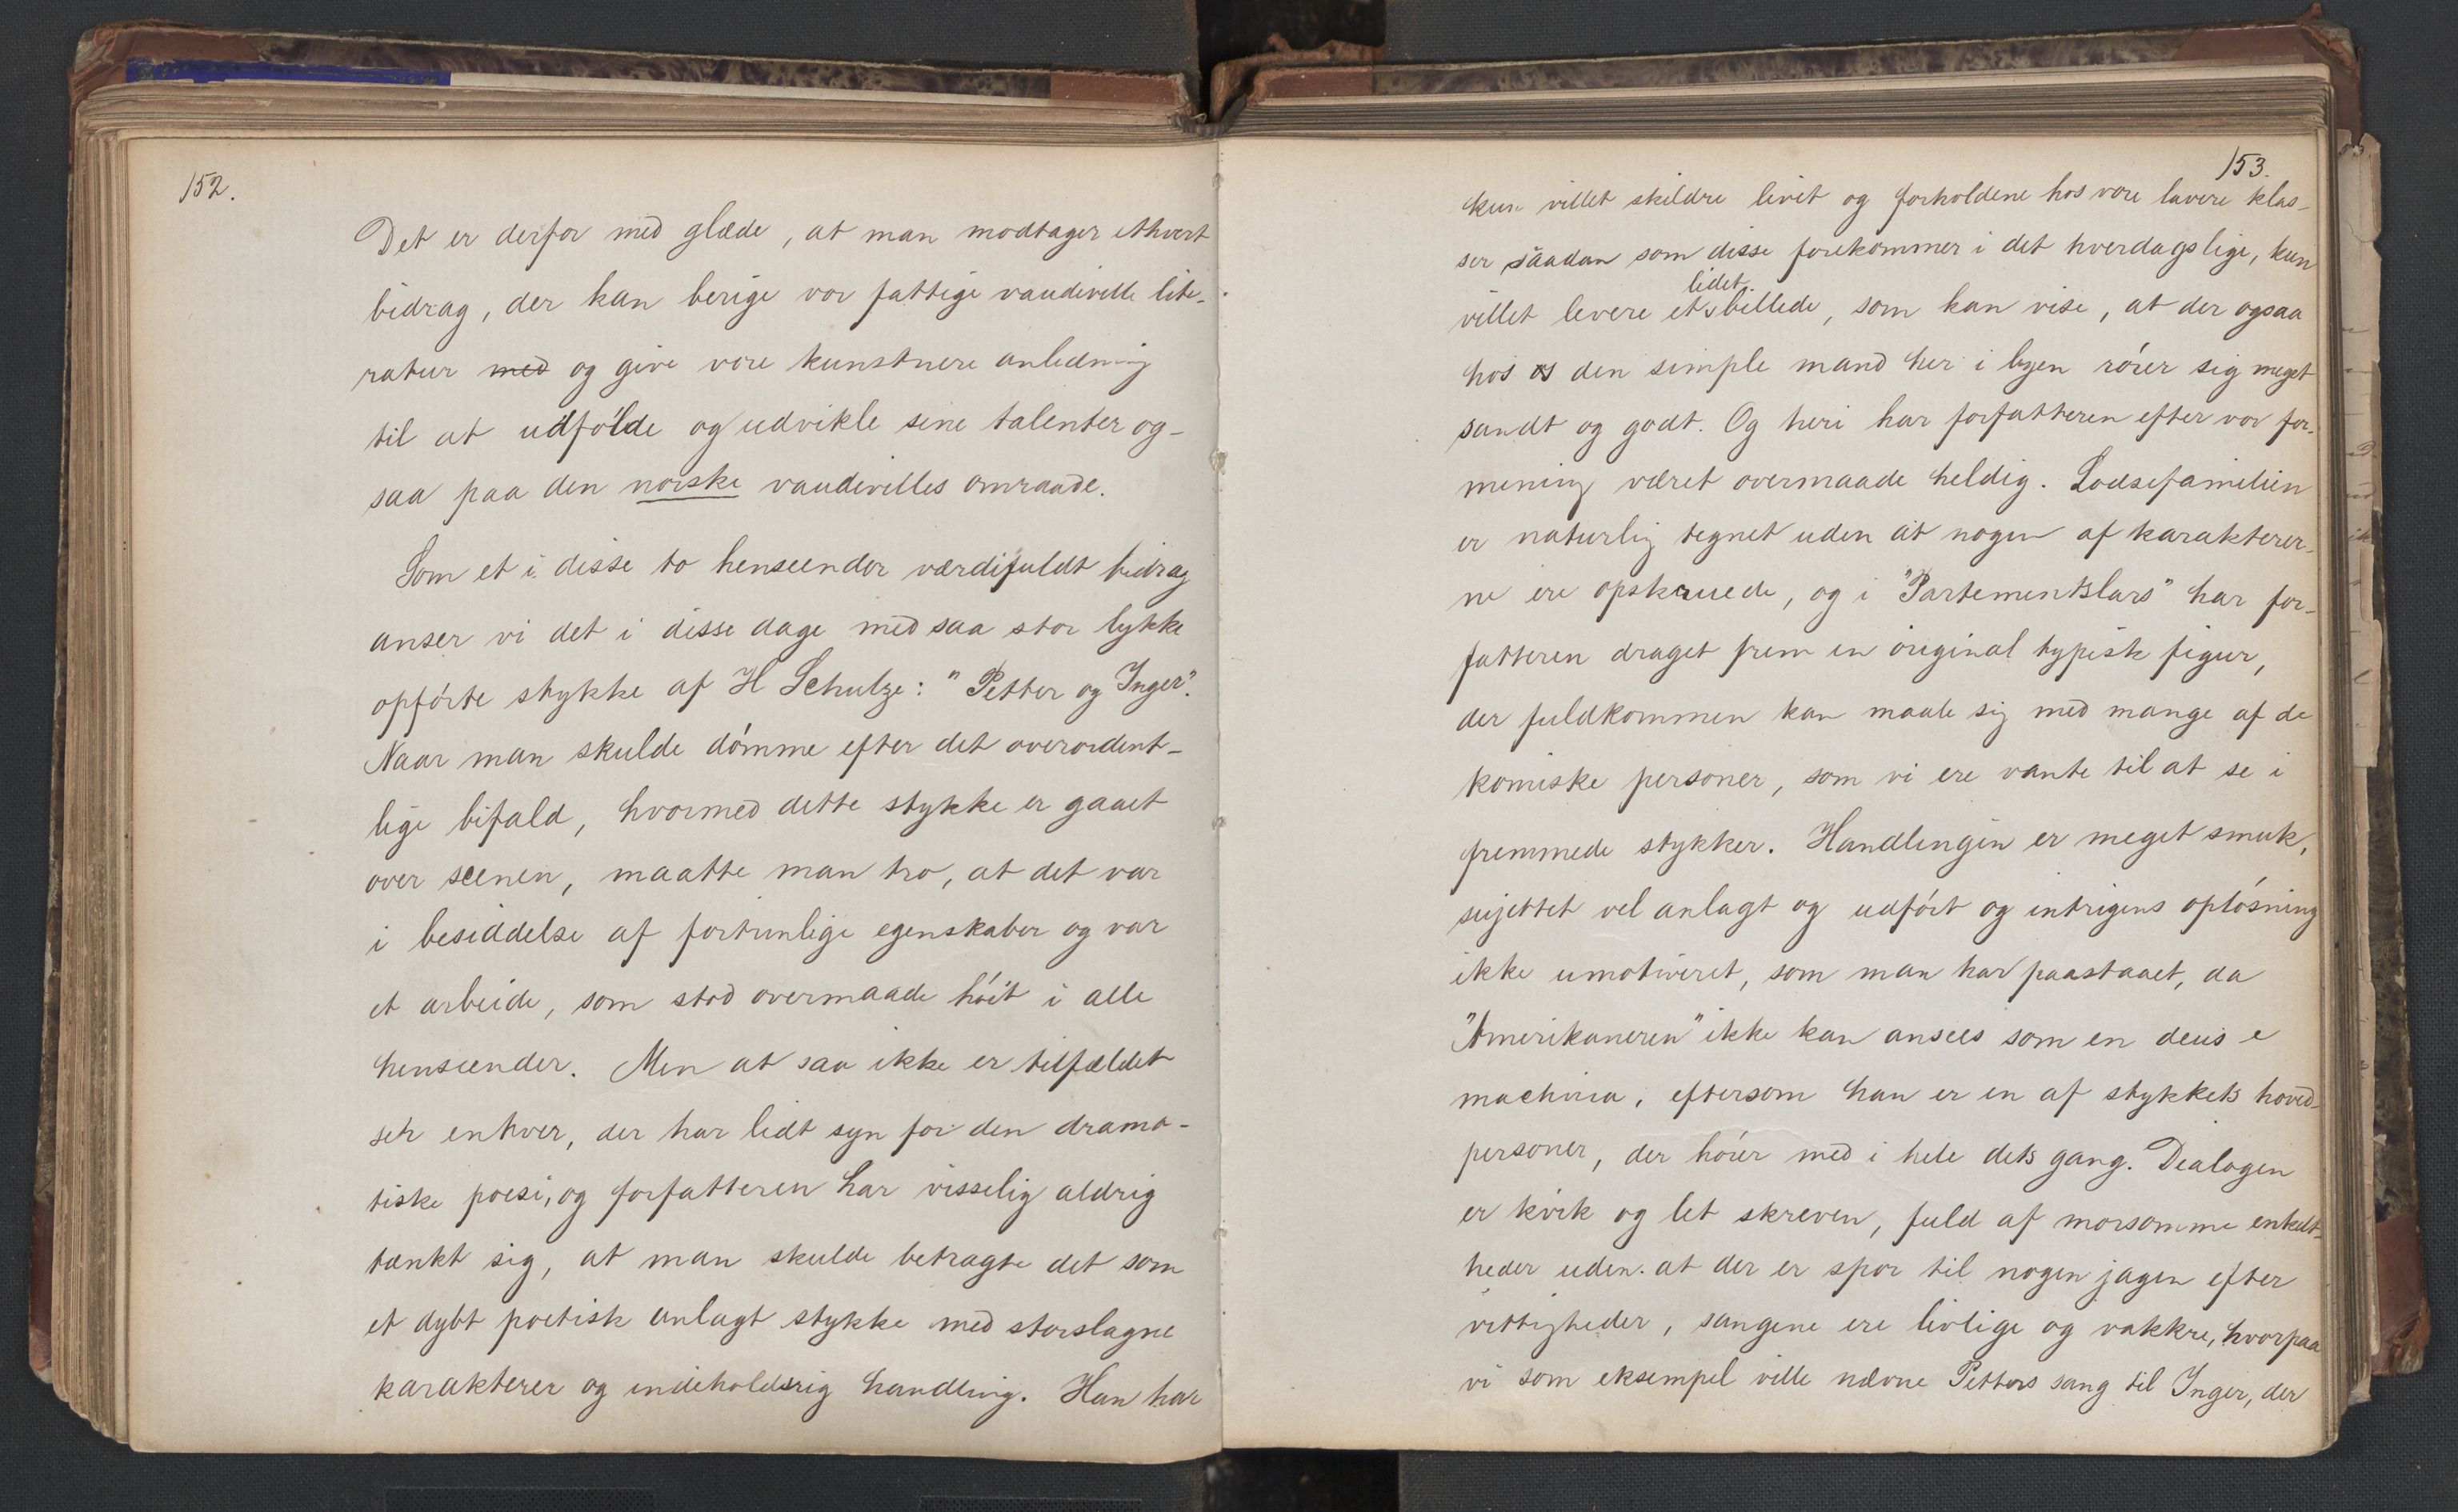 152.
Det er derfor med glæde, at man modtager ethvert
bidrag, der kan berige vor fattige vaudeville lite-
ratur med og give vore kunstnere anledning
til at udfolde og udvikle sine talenter og-
saa paa den norske vaudevilles omraade.
Som et i disse to henseender værdifuldt bidrag
anser vi det i disse dage med saa stor lykke
opførte stykke af H Schulze: "Petter og Inger".
Naar man skulde dømme efter det overordent-
lige bifald, hvormed dette stykke er gaaet
over scenen, maatte man tro, at det var
i besiddelse af fortrinlige egenskaber og var
et arbeide, som stod overmaade høit i alle
henseender. Men at saa ikke er tilfældet
seer enhver, der har lidt syn for den drama-
tiske poesi, og forfatteren har visselig aldrig
tænkt sig, at man skulde betragte det som
et dybt poetisk anlagt stykke med storslagne
karakterer og indeholdsrig handling. Han har
153.
kun villet skildre livet og forholdene hos vore lavere klas-
ser saadan som disse forekommer i det hverdagslige, kun
lidet
villet levere et billede, som kan vise, at der ogsaa
hos os den simple mand her i byen rører sig meget
sandt og godt. Og heri har forfatteren efter vor for-
mening været overmaade heldig. Lodsefamilien
er naturlig tegnet uden at nogen af karakterer-
ne ere opskruede, og i "Partementslars" har for-
fatteren draget frem en original typisk figur,
der fuldkommen kan maale sig med mange af de
komiske personer, som vi ere vante til at se i
fremmede stykker. Handlingen er meget smuk,
sujettet vel anlagt og udført og intrigens opløsning
ikke umotiveret, som man har paastaaet, da
"Amerikaneren" ikke kan ansees som en deus e
machina, eftersom han er en af stykkets hoved-
personer, der hører med i hele dets gang. Dialogen
er kvik og let skreven, fuld af morsomme enkelt-
heder uden at der er spor til nogen jagen efter
vittigheder, sangene ere livlige og vakkre, hvorpaa
vi som eksempel ville nævne Petters sang til Inger, der